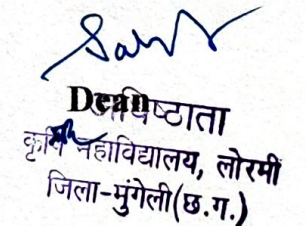 Dean
अधिष्ठाता
कृषि महाविद्यालय, लोरमी
जिला-मुंगेली(छ.ग.)